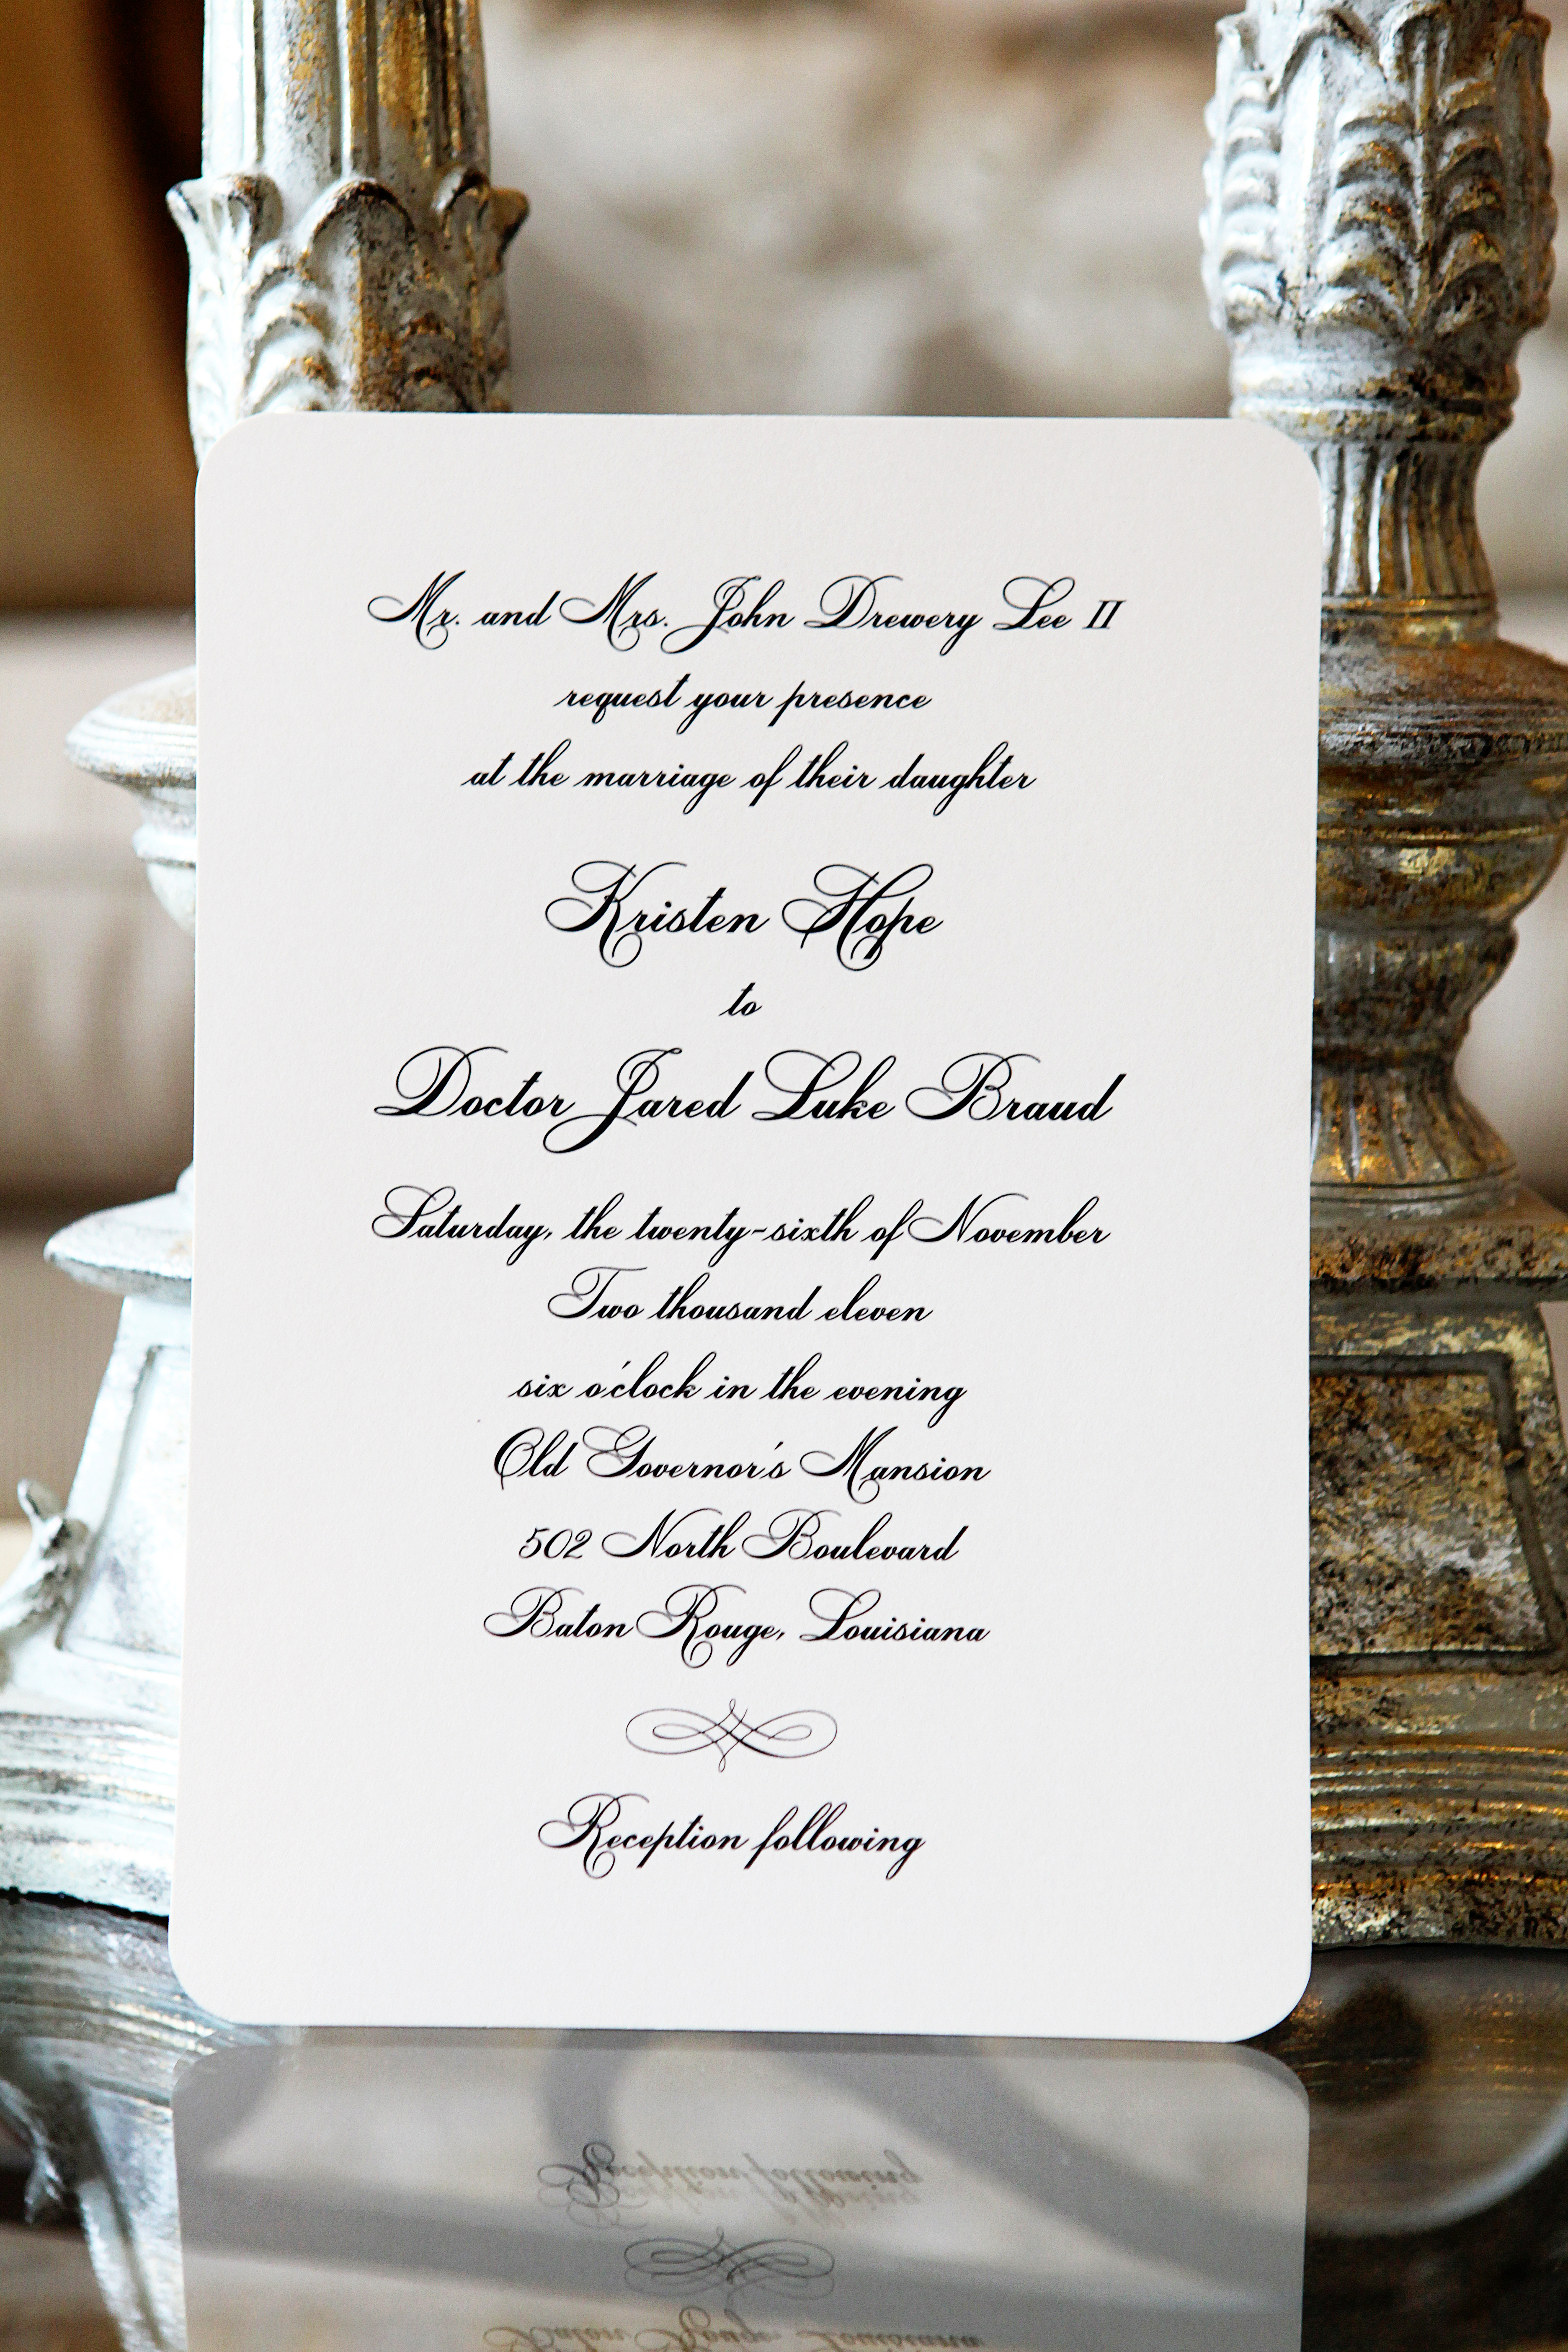 Mr. and Mrs. John Drewery Lee II
request your presence
at the marriage of their daughter
Kristen Hope
to
Doctor Jared Luke Braud
Saturday, the twenty-sixth of November
Two thousand eleven
six o'clock in the evening
Old Governor's Mansion
502 North Boulevard
Baton Rouge, Louisiana
Reception following